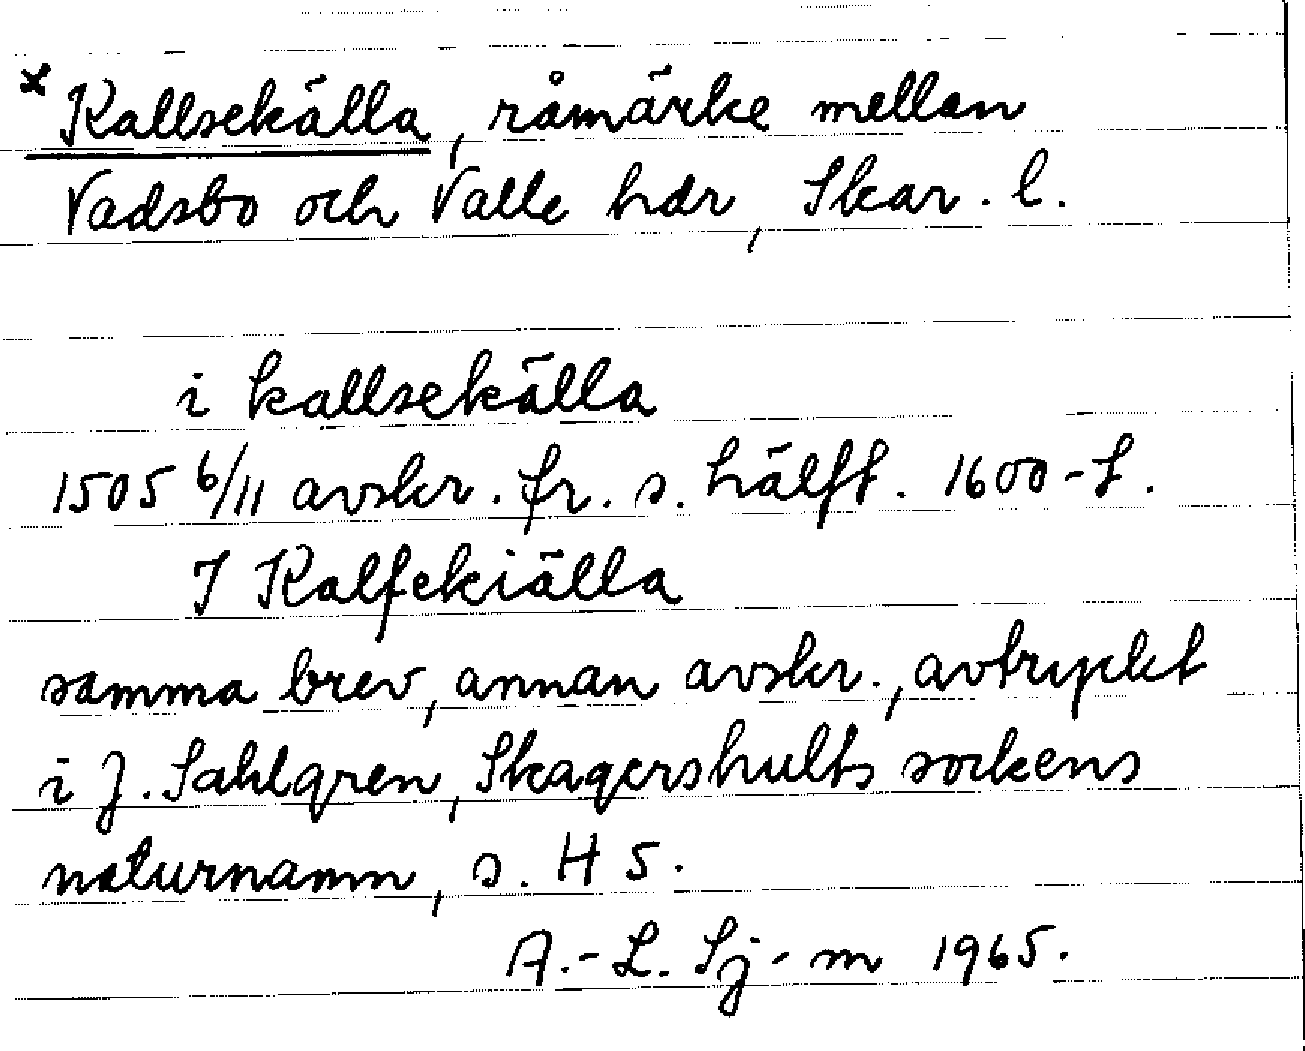 x Kallsekälla, råmärke mellan
Vadsbo och Valle hdr, Skar. l.
i kallsekälla
1505 6/11 avskr. fr. s. hälft. 1600-t.
I Kalfekiälla
samma brev, annan avskr., avtryckt
i J. Sahlgren, Skagershults sockens
naturnamn, s. H 5.
A.-L. Sj-m 1965.